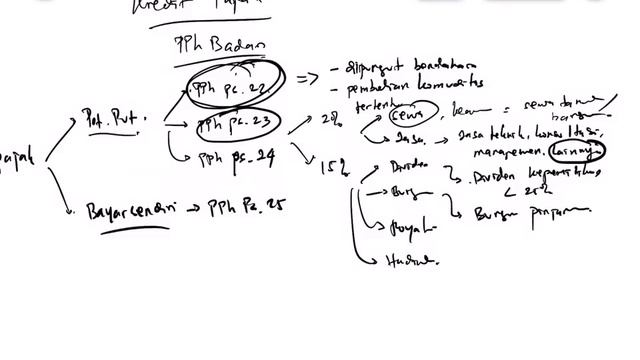 Kredit Pajak
PPh Badan
PPh ps. 22 => - dipungut bendahara
- pembelian komoditas
tertentu
Pot. Put.
PPh ps. 23
2%
sewa
= sewa tanah
Jasa
Jasa teknik, konsultasi,
manajemen, lainnya
PPh ps. 24
15%
Dividen
Dividen kepemilikan
< 25%
Bunga
Bunga pinjaman
Royalti
Hadiah
Pajak
Bayar sendiri → PPh Ps. 25